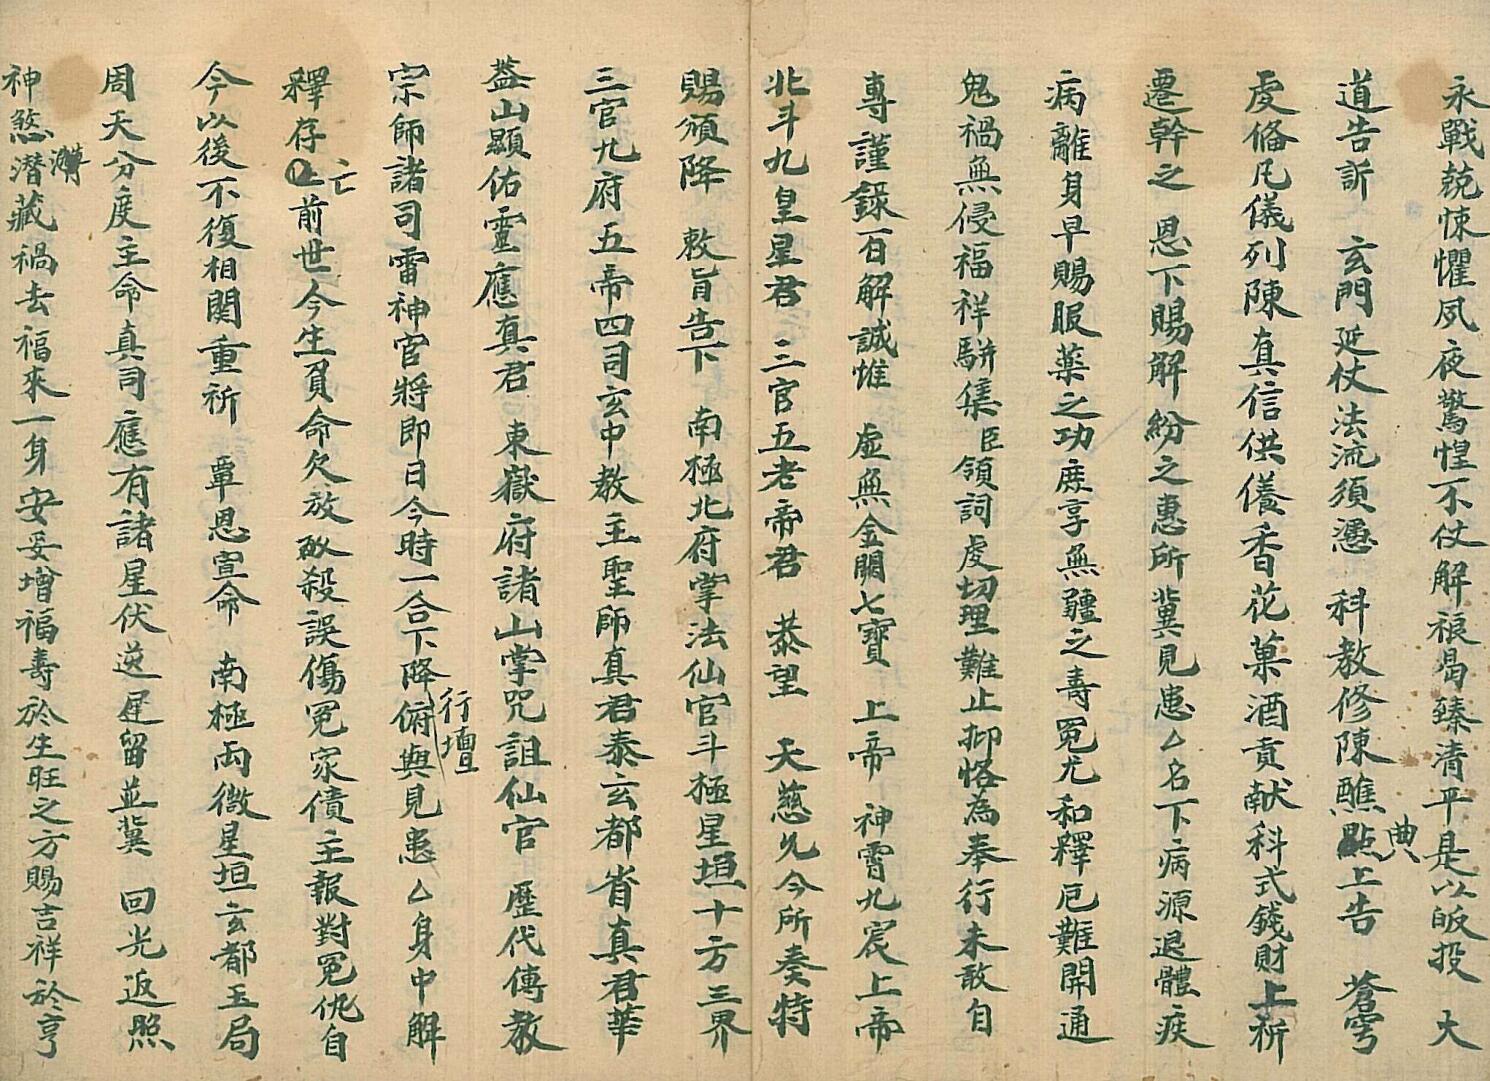 永戰兢悚懼夙夜驚惶不仗解禳曷臻清平是以皈投 大
道告訴 玄門延仗法流須憑 科教修陳醮典上告 蒼穹
虔俻凡儀列陳真信供養香花菓酒貢献科式錢財上祈
遷幹之 恩下賜解紛之惠所兾見患厶名下病源退體疾
病離身早賜服薬之功庶享無疆之壽冤尤和釋厄難開通
鬼禍無侵福祥駢集臣領詞虔切理難止抑恪為奉行未敢自
專謹錄百解誠惟 虛無金闕七寶 上帝 神霄九宸上帝
北斗九皇星君 三官五老帝君 恭望 天慈允今所奏特
賜頒降 敕旨告下 南極北府掌法仙官斗極星垣十方三界
三官九府五帝四司玄中教主聖師真君泰玄都省真君華
蓋山顯佑靈應真君 東嶽府諸山掌咒詛仙官 歷代傳教
宗師諸司雷神官將即日今時一合下降行壇俯與見患厶身中解
釋存亡前世今生負命欠放砍殺誤傷冤家債主報對冤仇自
今以後不復相関重祈 覃恩宣命 南極両微星垣玄都玉局
周天分度主命真司應有諸星伏逆遲留並兾 回光返照
神煞潜藏禍去福來一身安妥增福壽於生旺之方賜吉祥於亨